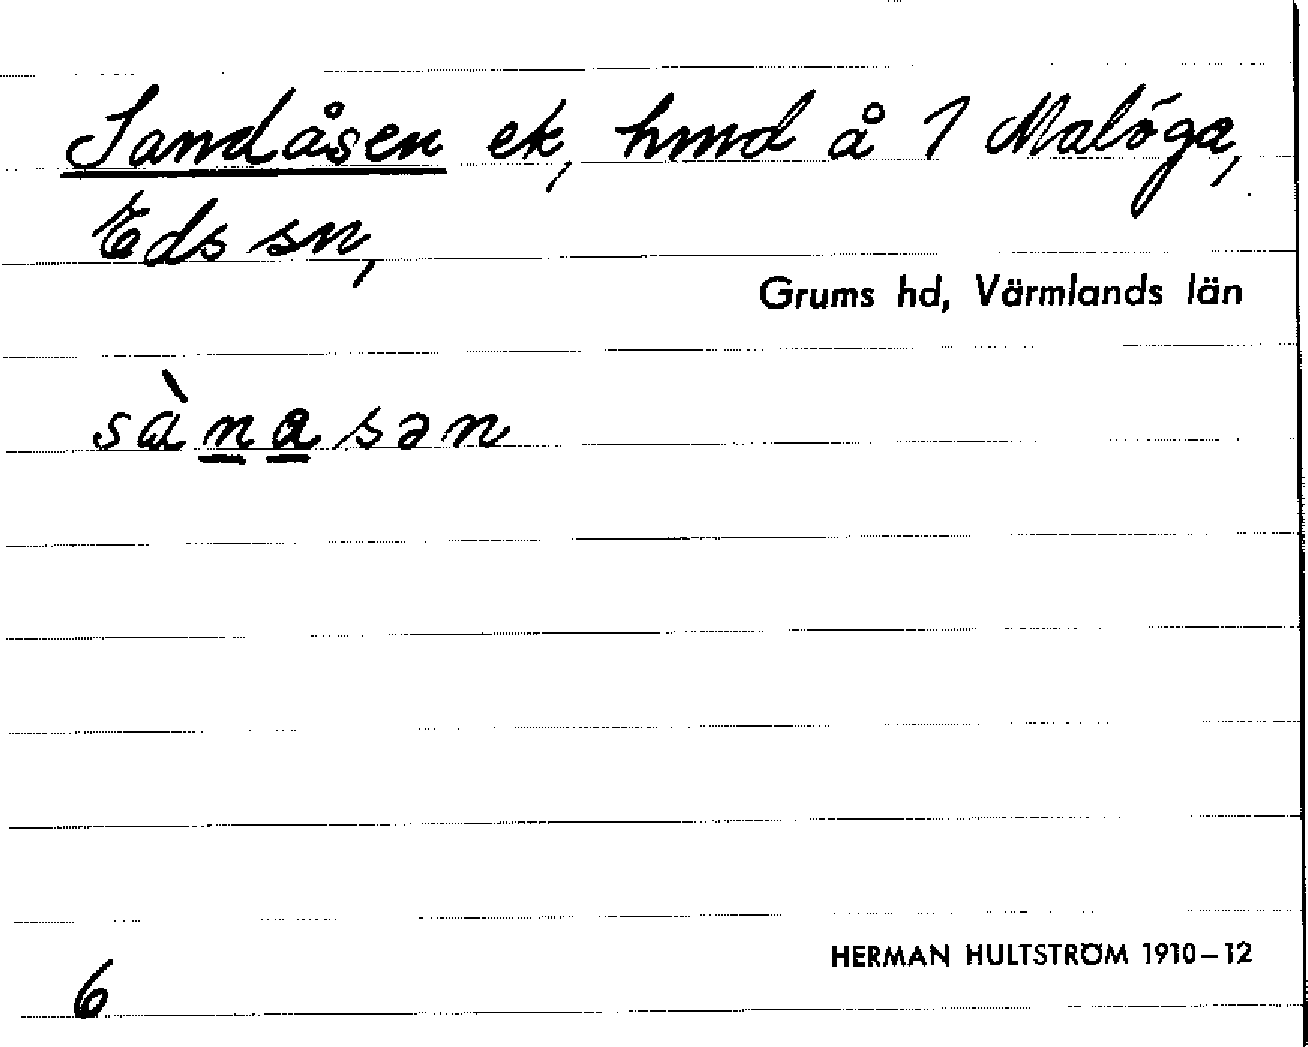 Sandåsen ek, hmd å 1 Malöga,
Eds sn,
Grums hd, Värmlands län
sànasən
HERMAN HULTSTRÖM 1910–12
6